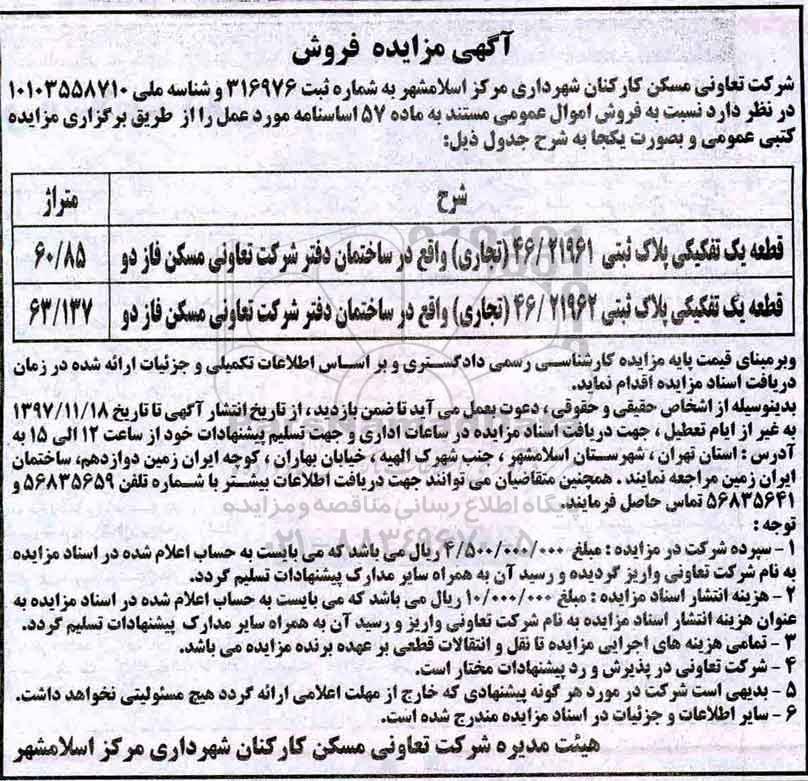 آگهی مزایده فروش
شرکت تعاونی مسکن کارکنان شهرداری مرکز اسلامشهر به شماره ثبت ۳۱۶۹۷۶ و شناسه ملی ۱۰۱۰۳۵۵۸۷۱۰
در نظر دارد نسبت به فروش اموال عمومی مستند به ماده ۵۷ اساسنامه مورد عمل را از طریق برگزاری مزایده
کتبی عمومی و بصورت یکجا به شرح جدول ذیل:
شرح متراژ
قطعه یک تفکیکی پلاک ثبتی ۴۶/۲۱۹۶۱ (تجاری) واقع در ساختمان دفتر شرکت تعاونی مسکن فاز دو ۶۰/۸۵
قطعه یک تفکیکی پلاک ثبتی ۴۶/۲۱۹۶۲ (تجاری) واقع در ساختمان دفتر شرکت تعاونی مسکن فاز دو ۶۳/۱۳۷
وبرمبنای قیمت پایه مزایده کارشناسی رسمی دادگستری و بر اساس اطلاعات تکمیلی و جزئیات ارائه شده در زمان
دریافت اسناد مزایده اقدام نماید.
بدینوسیله از اشخاص حقیقی و حقوقی ، دعوت بعمل می آید تا ضمن بازدید ، از تاریخ انتشار آگهی تا تاریخ ۱۳۹۷/۱۱/۱۸
به غیر از ایام تعطیل ، جهت دریافت اسناد مزایده در ساعات اداری و جهت تسلیم پیشنهادات خود از ساعت ۱۲ الی ۱۵ به
آدرس : استان تهران ، شهرستان اسلامشهر ، جنب شهرک الهیه ، خیابان بهاران ، کوچه ایران زمین دوازدهم، ساختمان
ایران زمین مراجعه نمایند . همچنین متقاضیان می توانند جهت دریافت اطلاعات بیشتر با شماره تلفن ۵۶۸۳۵۶۵۹ و
۵۶۸۳۵۶۴۱ تماس حاصل فرمایند.
توجه :
۱ - سپرده شرکت در مزایده : مبلغ ۴/۵۰۰/۰۰۰/۰۰۰ ریال می باشد که می بایست به حساب اعلام شده در اسناد مزایده
به نام شرکت تعاونی واریز گردیده و رسید آن به همراه سایر مدارک پیشنهادات تسلیم گردد.
۲ - هزینه انتشار اسناد مزایده : مبلغ ۱۰/۰۰۰/۰۰۰ ریال می باشد که می بایست به حساب اعلام شده در اسناد مزایده به
عنوان هزینه انتشار اسناد مزایده به نام شرکت تعاونی واریز و رسید آن به همراه سایر مدارک پیشنهادات تسلیم گردد.
۳ - تمامی هزینه های اجرایی مزایده تا نقل و انتقالات قطعی بر عهده برنده مزایده می باشد.
۴ - شرکت تعاونی در پذیرش و رد پیشنهادات مختار است.
۵ - بدیهی است شرکت در مورد هر گونه پیشنهادی که خارج از مهلت اعلامی ارائه گردد هیچ مسئولیتی نخواهد داشت.
۶ - سایر اطلاعات و جزئیات در اسناد مزایده مندرج شده است.
هیئت مدیره شرکت تعاونی مسکن کارکنان شهرداری مرکز اسلامشهر
پایگاه اطلاع رسانی مناقصه و مزایده